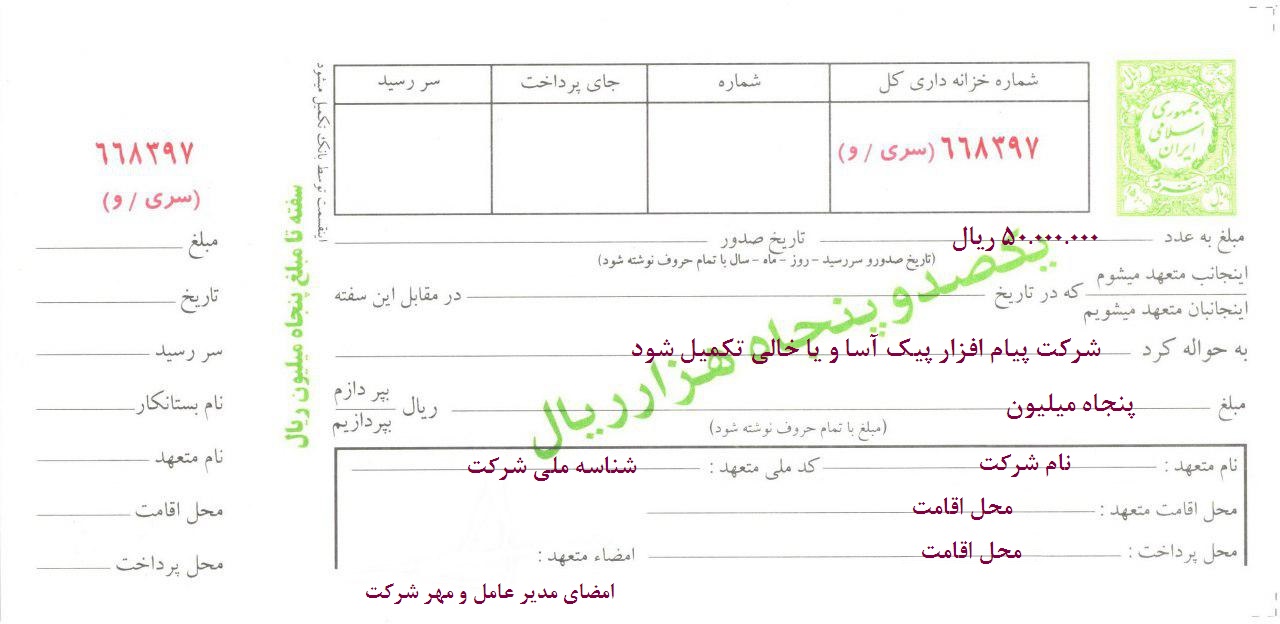 شماره خزانه داری کل
شماره
جای پرداخت
سر رسید
۶۶۸۳۹۷ (سری / و)
جمهوری
اسلامی
ایران
سفته
ریال
ریال
اینقسمت توسط بانک تکمیل میشود
سفته تا مبلغ پنجاه میلیون ریال
یکصدو پنجاه هزار ریال
مبلغ به عدد ۵۰.۰۰۰.۰۰۰ ریال تاریخ صدور
(تاریخ صدورو سررسید - روز - ماه - سال با تمام حروف نوشته شود)
اینجانب متعهد میشوم
اینجانبان متعهد میشویم
که در تاریخ در مقابل این سفته
به حواله کرد شرکت پیام افزار پیک آسا و یا خالی تکمیل شود
مبلغ پنجاه میلیون ریال
بپر دازم
بپردازیم
(مبلغ با تمام حروف نوشته شود)
نام متعهد : نام شرکت کد ملی متعهد : شناسه ملی شرکت
محل اقامت متعهد : محل اقامت
محل پرداخت : محل اقامت امضاء متعهد :
امضای مدیر عامل و مهر شرکت
۶۶۸۳۹۷
(سری / و)
مبلغ
تاریخ
سر رسید
نام بستانکار
نام متعهد
محل اقامت
محل پرداخت